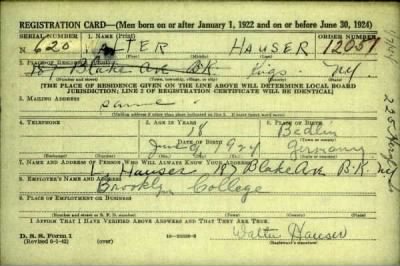 REGISTRATION CARD—(Men born on or after January 1, 1922 and on or before June 30, 1924)
SERIAL NUMBER 1. NAME (Print) ORDER NUMBER
N 620 WALTER HAUSER 12051
2. PLACE OF RESIDENCE (Print)
187 Blake Ave B.K. Kings N.Y.
(Number and street) (Town, township, village, or city) (County) (State)
[THE PLACE OF RESIDENCE GIVEN ON THE LINE ABOVE WILL DETERMINE LOCAL BOARD
JURISDICTION; LINE 2 OF REGISTRATION CERTIFICATE WILL BE IDENTICAL]
3. MAILING ADDRESS
same
4. TELEPHONE 5. AGE IN YEARS 6. PLACE OF BIRTH
18 Berlin
DATE OF BIRTH
1924 Germany
7. NAME AND ADDRESS OF PERSON WHO WILL ALWAYS KNOW YOUR ADDRESS
L. Hauser 187 Blake Ave B.K. NY
8. EMPLOYER'S NAME AND ADDRESS
Brooklyn College
9. PLACE OF EMPLOYMENT OR BUSINESS
(Number and street or R. F. D. number) (Town) (County) (State)
I AFFIRM THAT I HAVE VERIFIED ABOVE ANSWERS AND THAT THEY ARE TRUE.
D. S. S. Form 1
(Revised 6-9-42)
Walter Hauser
(Registrant's signature)